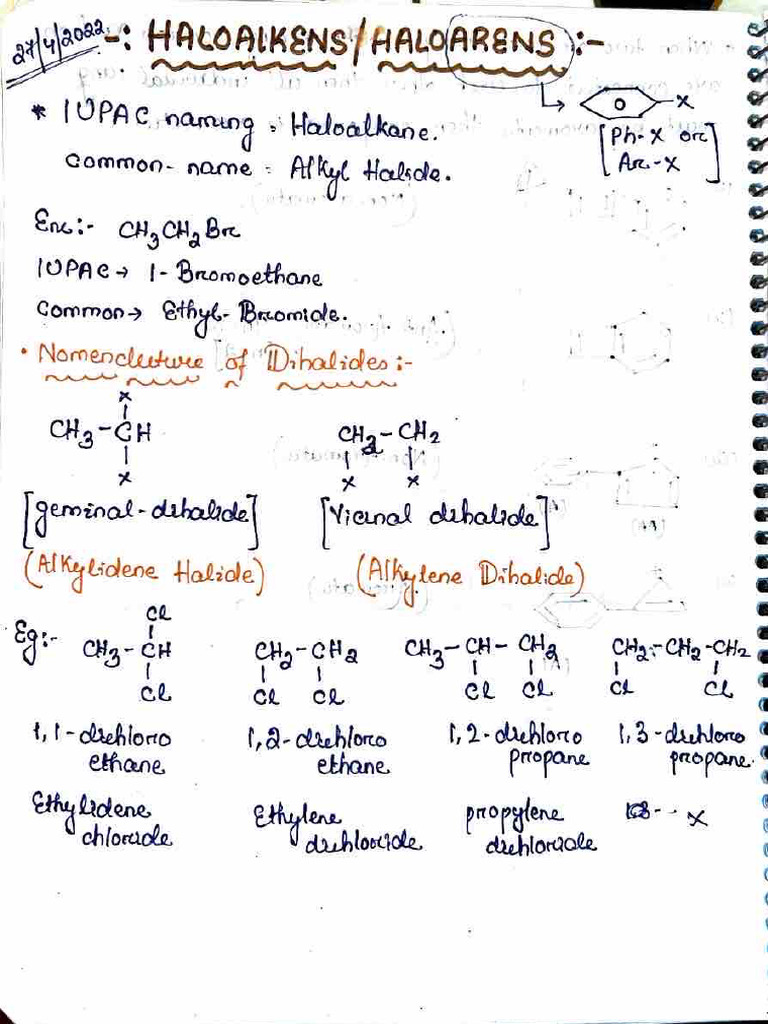 27/4/2022
-: HALOAlKENS/HALOARENS :-
X
[Ph-X or
Ar-X]
* IUPAC naming = Haloalkane.
common-name = Alkyl Halide.
Ex:- CH3CH2Br
IUPAC → 1-Bromoethane
Common → Ethyl-Bromide.
• Nomenclature of Dihalides:-
X
CH3-CH
X
CH2-CH2
X X
[geminal-dihalide] [Vicinal dihalide]
(Alkylidene Halide) (Alkylene Dihalide)
Eg:-
Cl
CH3-CH CH2-CH2 CH3-CH-CH2 CH2-CH2-CH2
Cl Cl Cl Cl Cl Cl Cl
1,1-dichloro 1,2-dichloro 1,2-dichloro 1,3-dichloro
ethane ethane propane propane.
Ethylidene Ethylene propylene x
chloride dichloride dichloride